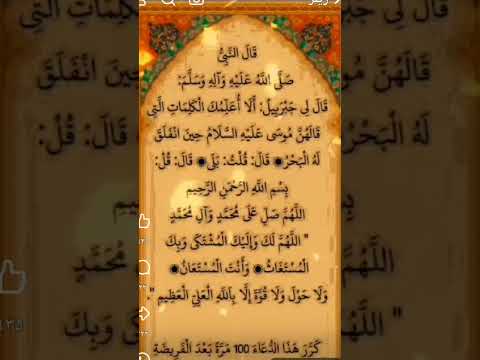 قَالَ النَّبِيُّ
صَلَّى اللَّهُ عَلَيْهِ وَآلِهِ وَسَلَّمَ:
قَالَ لِي جَبْرَبِيلُ: أَلَا أُعَلِّمُكَ الْكَلِمَاتِ الَّتِي
قَالَهُنَّ مُوسَى عَلَيْهِ السَّلَامُ حِينَ انْفَلَقَ
لَهُ الْبَحْرُ◉ قَالَ: قُلْتُ: بَلَى◉ قَالَ: قُلْ:
بِسْمِ اللَّهِ الرَّحْمَنِ الرَّحِيمِ
اللَّهُمَّ صَلِّ عَلَى مُحَمَّدٍ وَآلِ مُحَمَّدٍ
" اللَّهُمَّ لَكَ وَإِلَيْكَ الْمُشْتَكَى وَبِكَ
الْمُسْتَغَاثُ◉ وَأَنْتَ الْمُسْتَعَانُ◉
وَلَا حَوْلَ وَلَا قُوَّةَ إِلَّا بِاللَّهِ الْعَلِيِّ الْعَظِيمِ ".
كَرِّرْ هَذَا الدُّعَاءَ 100 مَرَّةً بَعْدَ الْفَرِيضَةِ